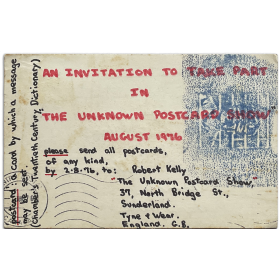 AN INVITATION TO TAKE PART
IN
THE UNKNOWN POSTCARD SHOW
AUGUST 1976
please send all postcards,
of any kind,
by 2.8.76, to: Robert Kelly
"The Unknown Postcard Show,"
37, North Bridge St.,
Sunderland.
Tyne & Wear.
England. G.B.
postcard: a card by which a message
may be sent
(Chamber's Twentieth Century Dictionary)